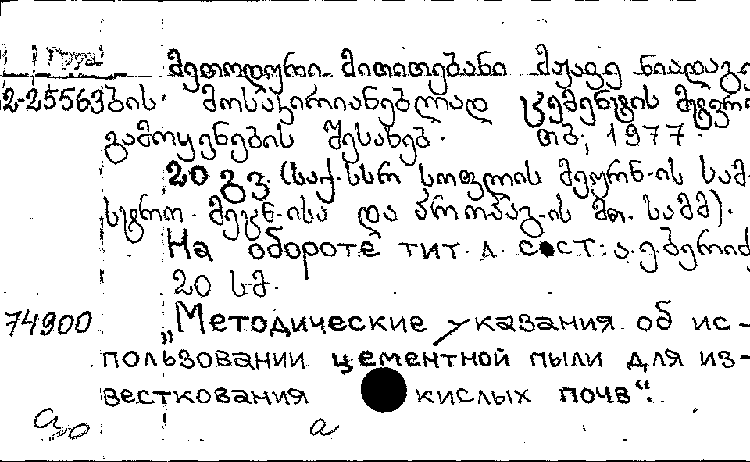 Груз.
მეთოდური მითითებანი მჟავე ნიადაგე
2-25563ბის მოსაკირიანებლად ცემენტის მტვრის
გამოყენების შესახებ. თბ., 1977.
20 გვ. (საქ. სსრ სოფლის მეურნ-ის სამ-
სტრო. მეცნ-ისა და პროპაგ-ის მთ. სამმ).
На обороте тит. л. сост: ა. ე. ბერიძ
20 სმ.
74900 „Методические указания об ис-
пользовании цементной пыли для из-
весткования кислых почв“.
а